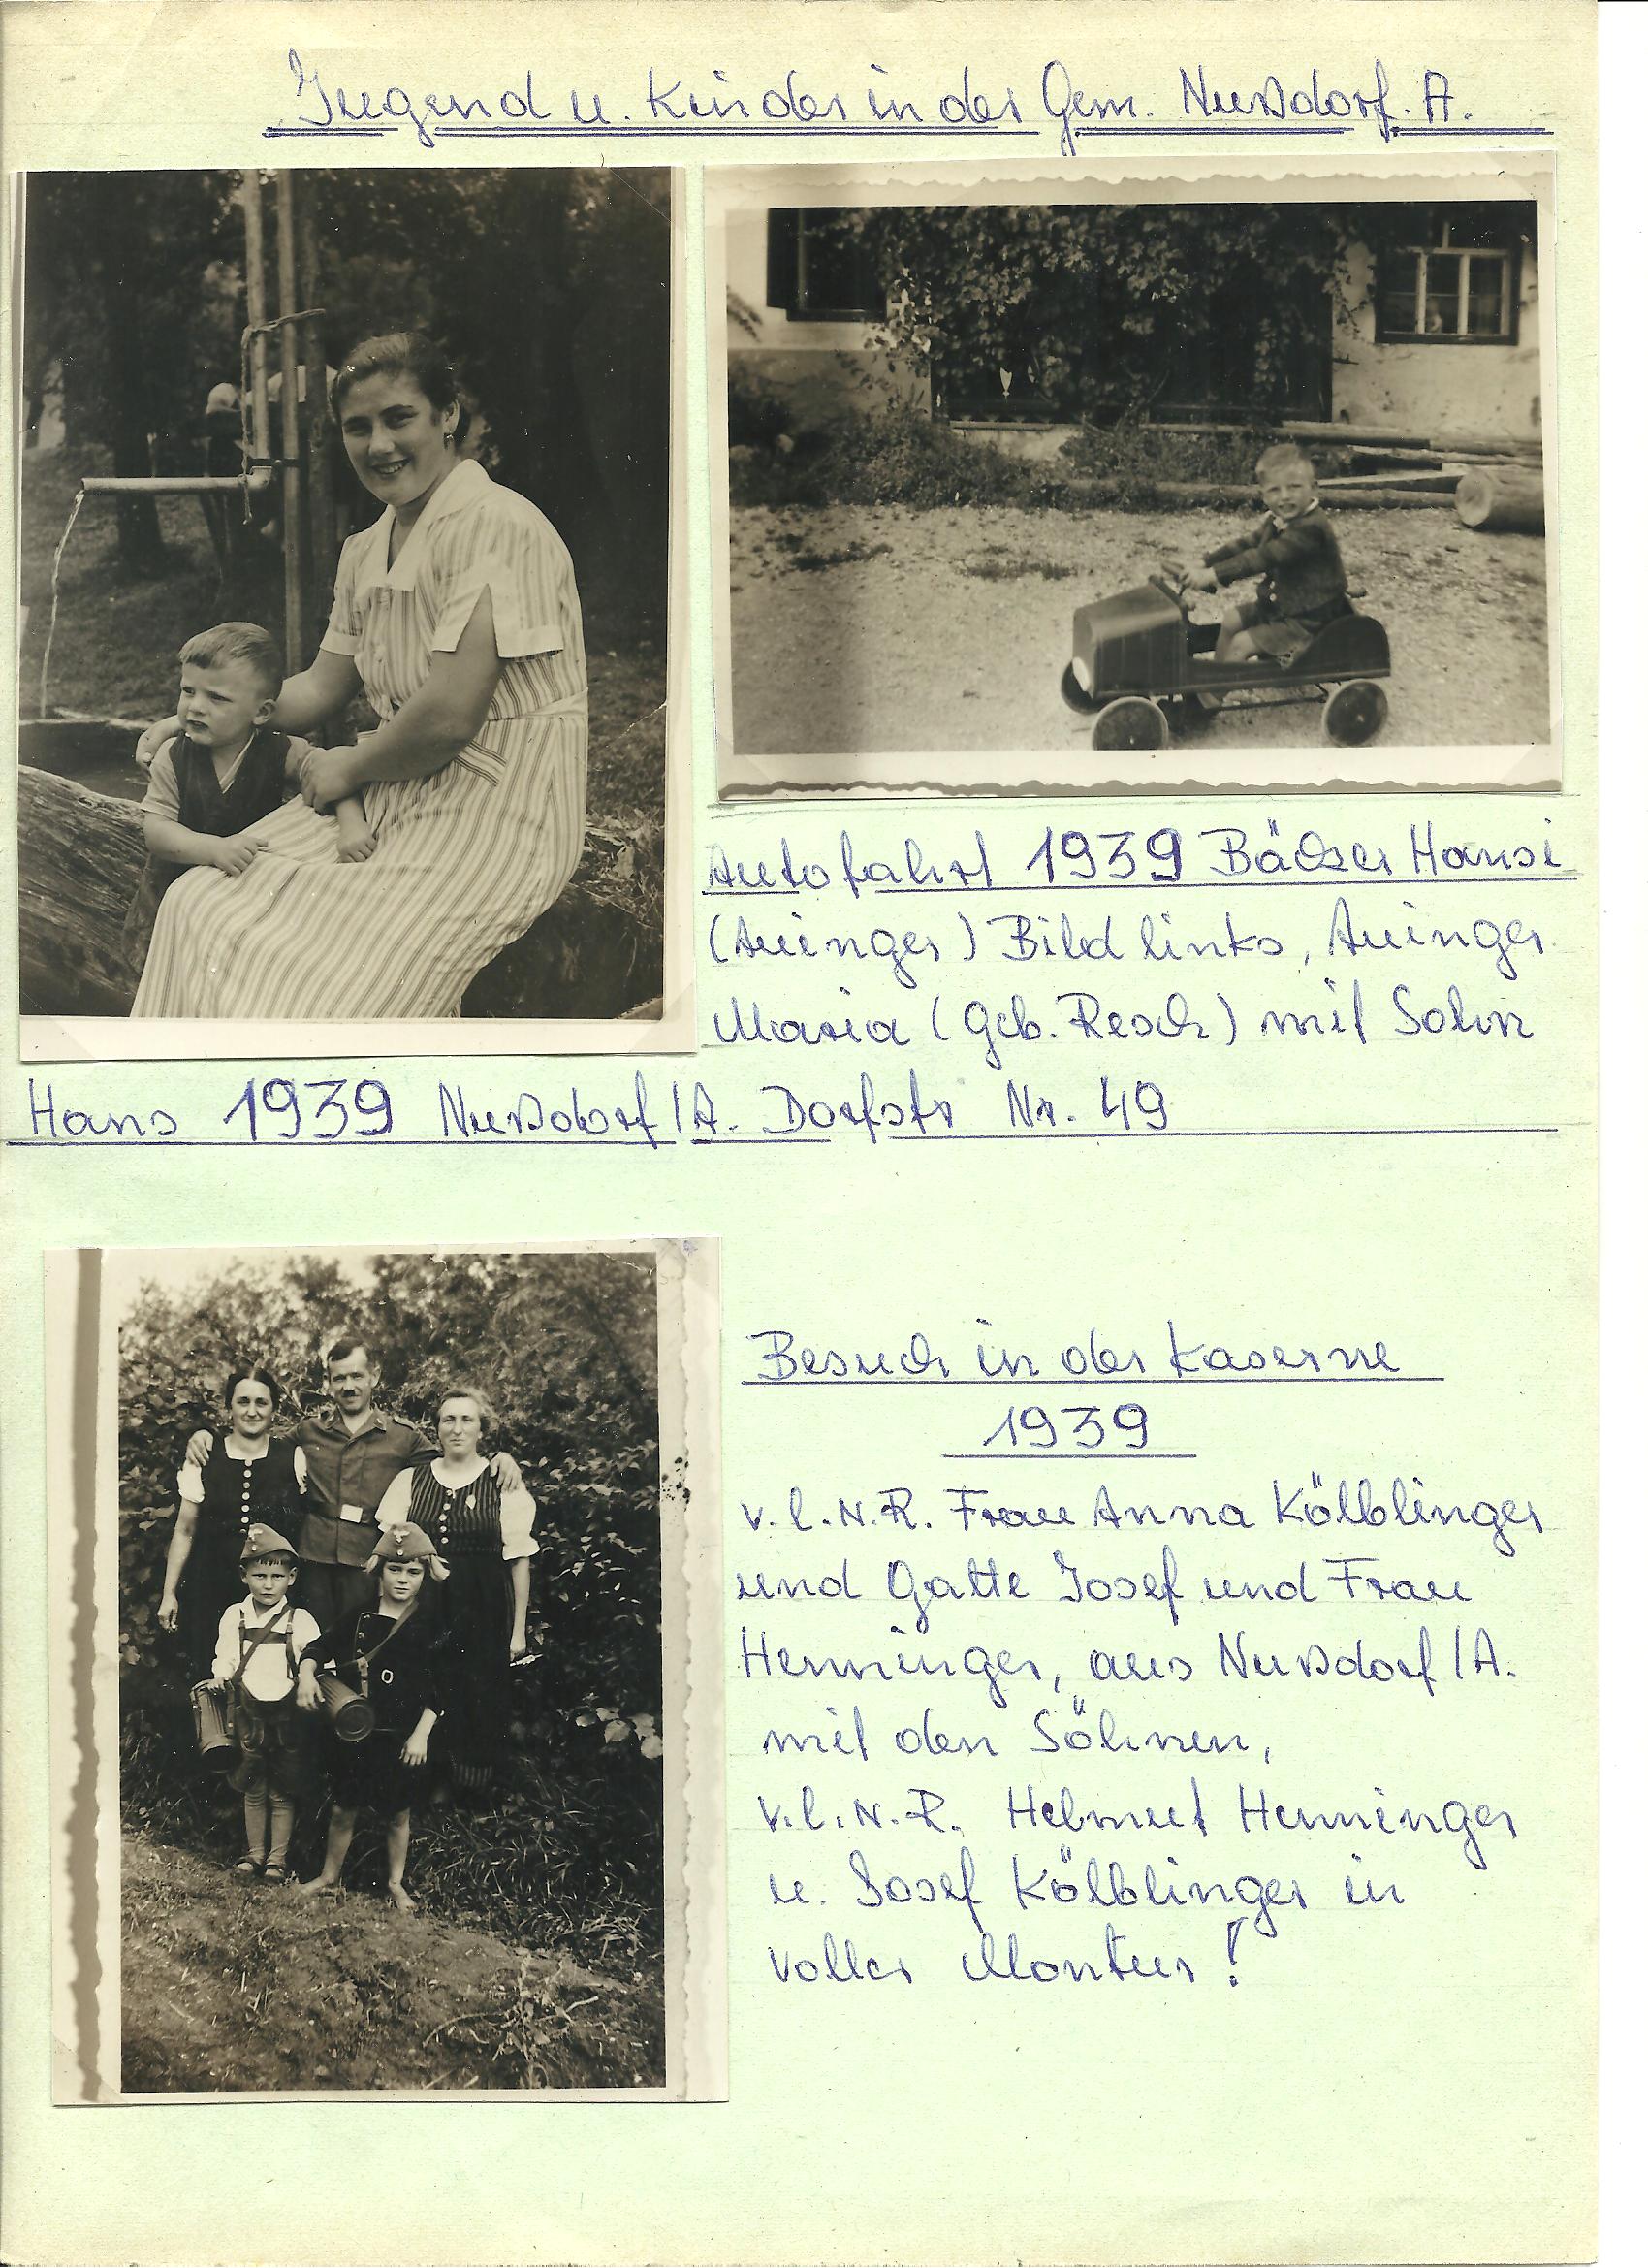 Jugend u. Kinder in der Gem. Nußdorf. A.
Autofahrt 1939 Bäcker Hansi
(Auinger) Bild links, Auinger
Maria (Geb. Resch) mit Sohn
Hans 1939 Nußdorf/A. Dorfstr Nr. 49
Besuch in der Kaserne
1939
v.l.N.R. Frau Anna Kölblinger
und Gatte Josef und Frau
Henninger, aus Nußdorf/A.
mit den Söhnen,
v.l.N.R. Helmut Henninger
u. Josef Kölblinger in
voller Montur!